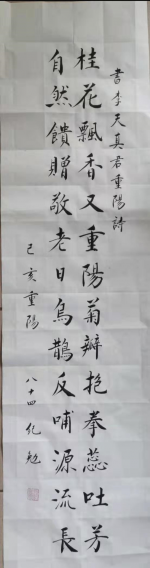 書李天真君重陽詩
桂花飄香又重陽菊瓣抱拳蕊吐芳
自然饋贈敬老日烏鵲反哺源流長
己亥重陽
八十四化勉